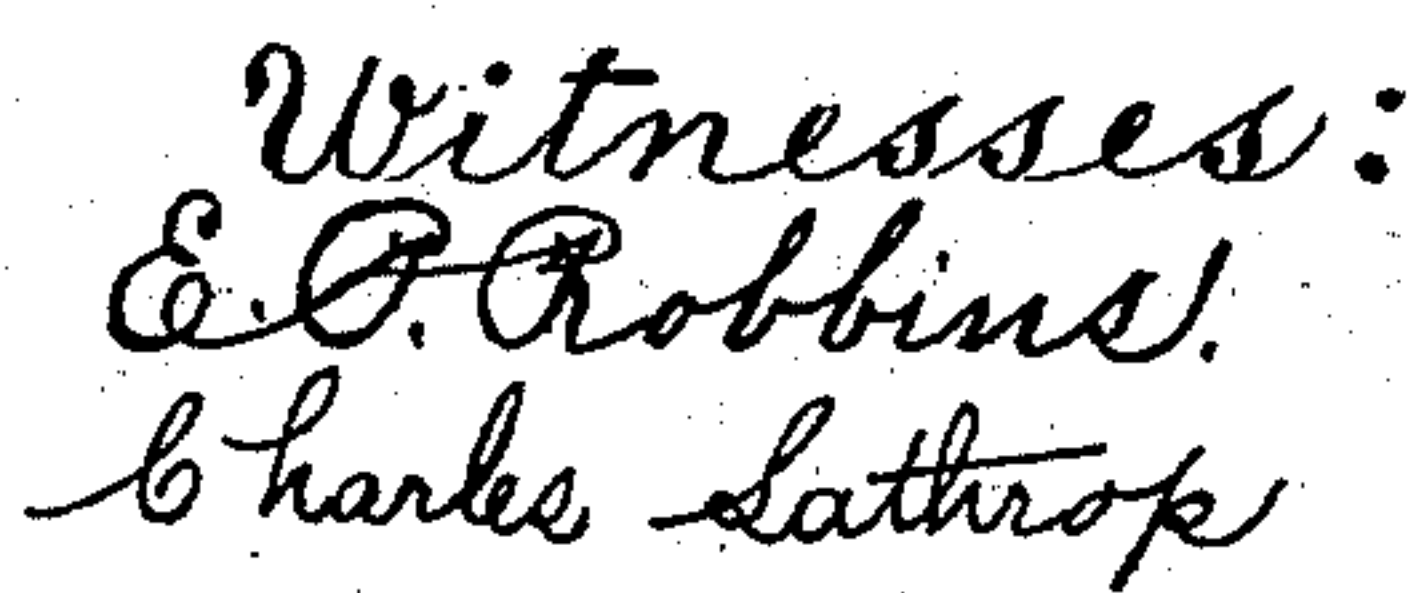 Witnesses:
E. P. Robbins.
Charles Lathrop